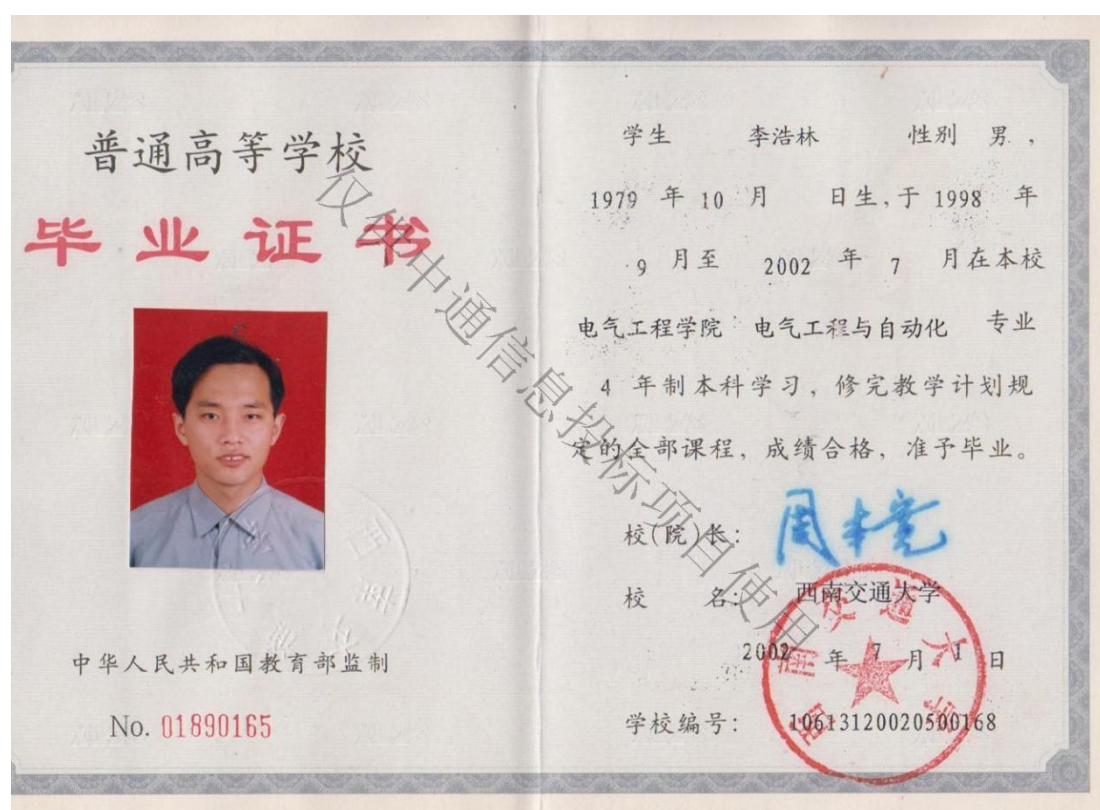 普通高等学校
毕业证书
中华人民共和国教育部监制
No. 01890165
学生 李浩林 性别 男,
1979 年 10 月 日生,于 1998 年
9 月至 2002 年 7 月在本校
电气工程学院 电气工程与自动化 专业
4 年制本科学习,修完教学计划规
定的全部课程,成绩合格,准予毕业。
校(院)长: 周本宽
校 名: 西南交通大学
2002 年 7 月 1 日
学校编号: 106131200205001​68
西南交通大学
仅供中通信息投标项目使用